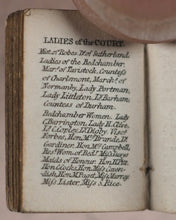 LADIES of the COURT.
Mist. of Robes Ds. of Sutherland.
Ladies of the Bedchamber
Mars. of Tavistock, Countess
of Charlemont, Marchs. of
Normanby, Lady Portman,
Lady Littleton, Ly. Barham,
Countess of Durham.
Bedchamber Women. Lady
C. Barrington, Lady H. Clive,
Ly. Copley, Ly. Digby, Visss.
Forbes, Hon. Mrs. Brand, Ly.
Gardiner, Hon. Mrs. Campbell,
Rest. Wom. of Bedr. Miss Davys
Maids of Honour. Hon.
Hon. Miss Caven-
dish, Hon. M. Paget, Miss Murray
Miss Lister, Miss S. Rice.